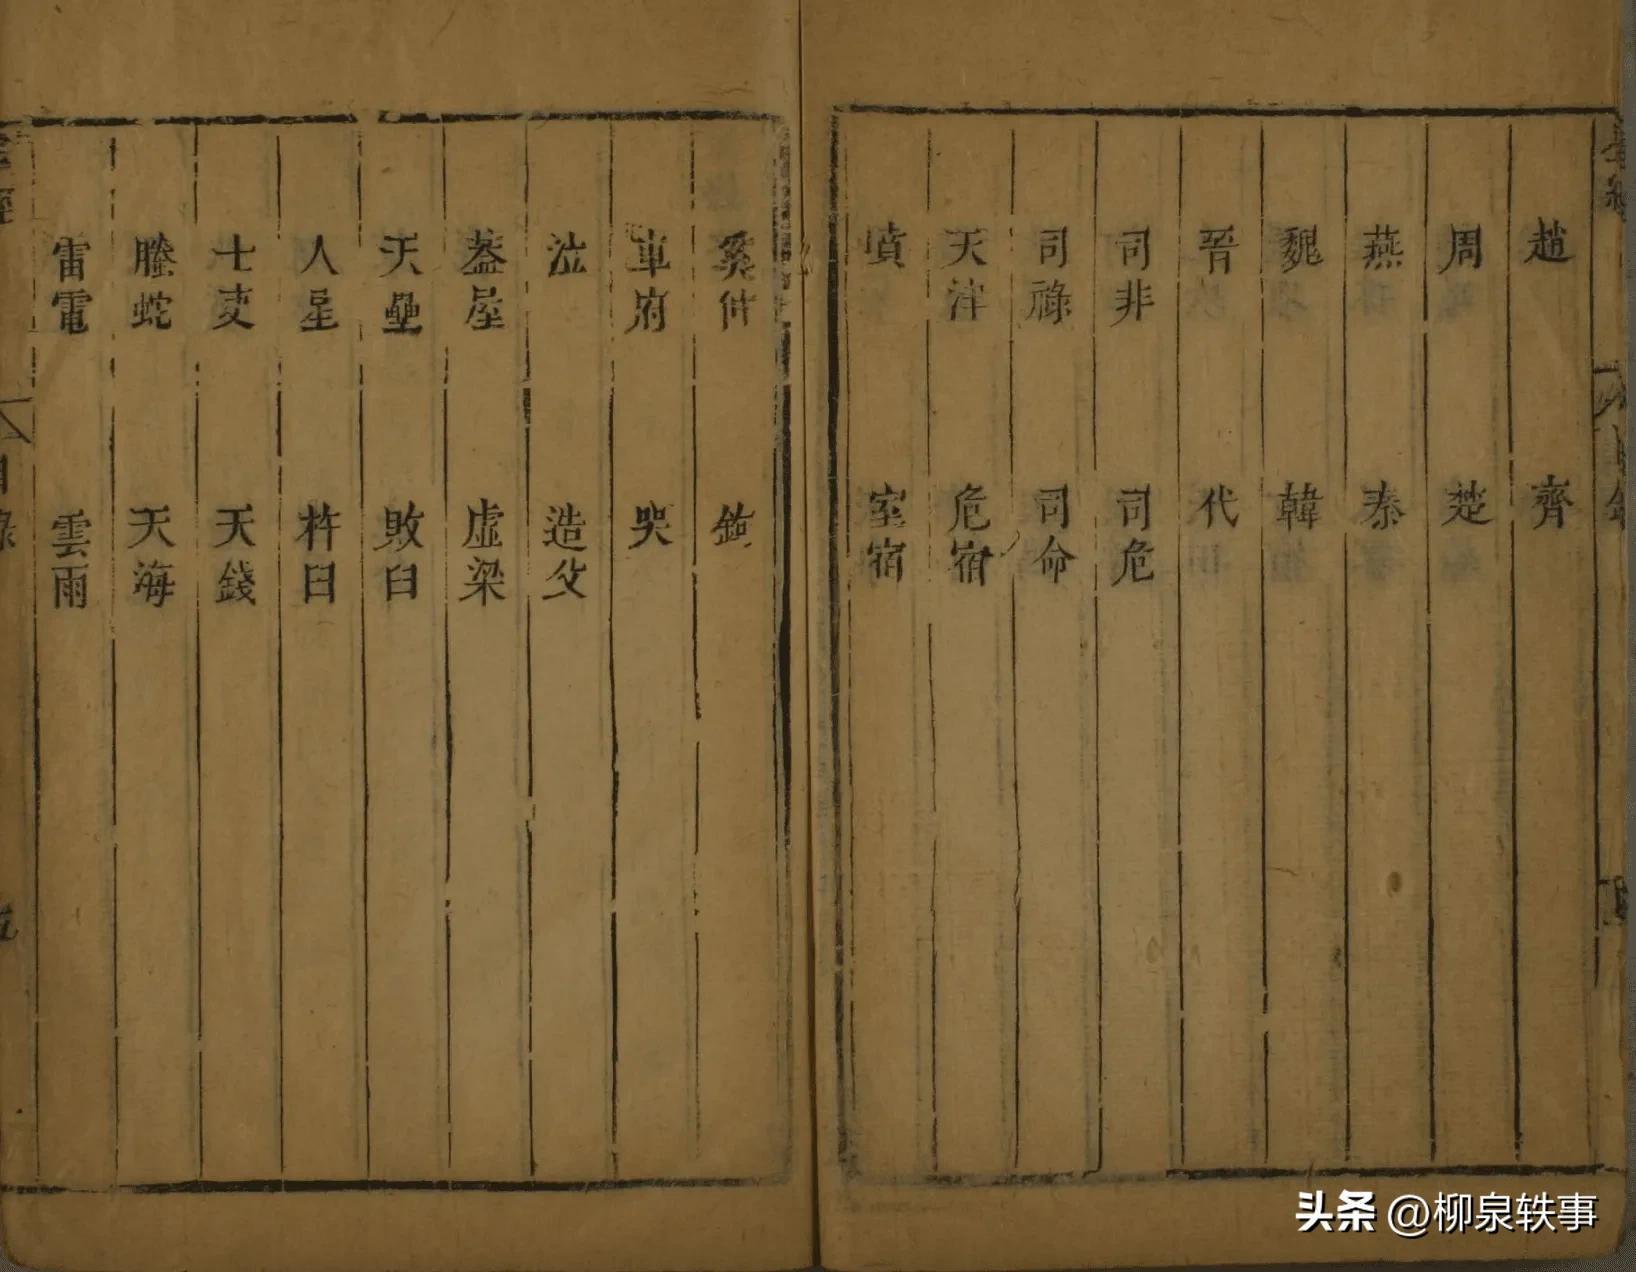 趙 齊
周 楚
燕 秦
魏 韓
晉 代
司非 司危
司祿 司命
天津 危宿
墳 室宿
奚仲 鉤
車府 哭
泣 造父
蓋屋 虛梁
天壘 敗臼
人星 杵臼
土吏 天錢
螣蛇 天海
雷電 雲雨
头条 @柳泉轶事